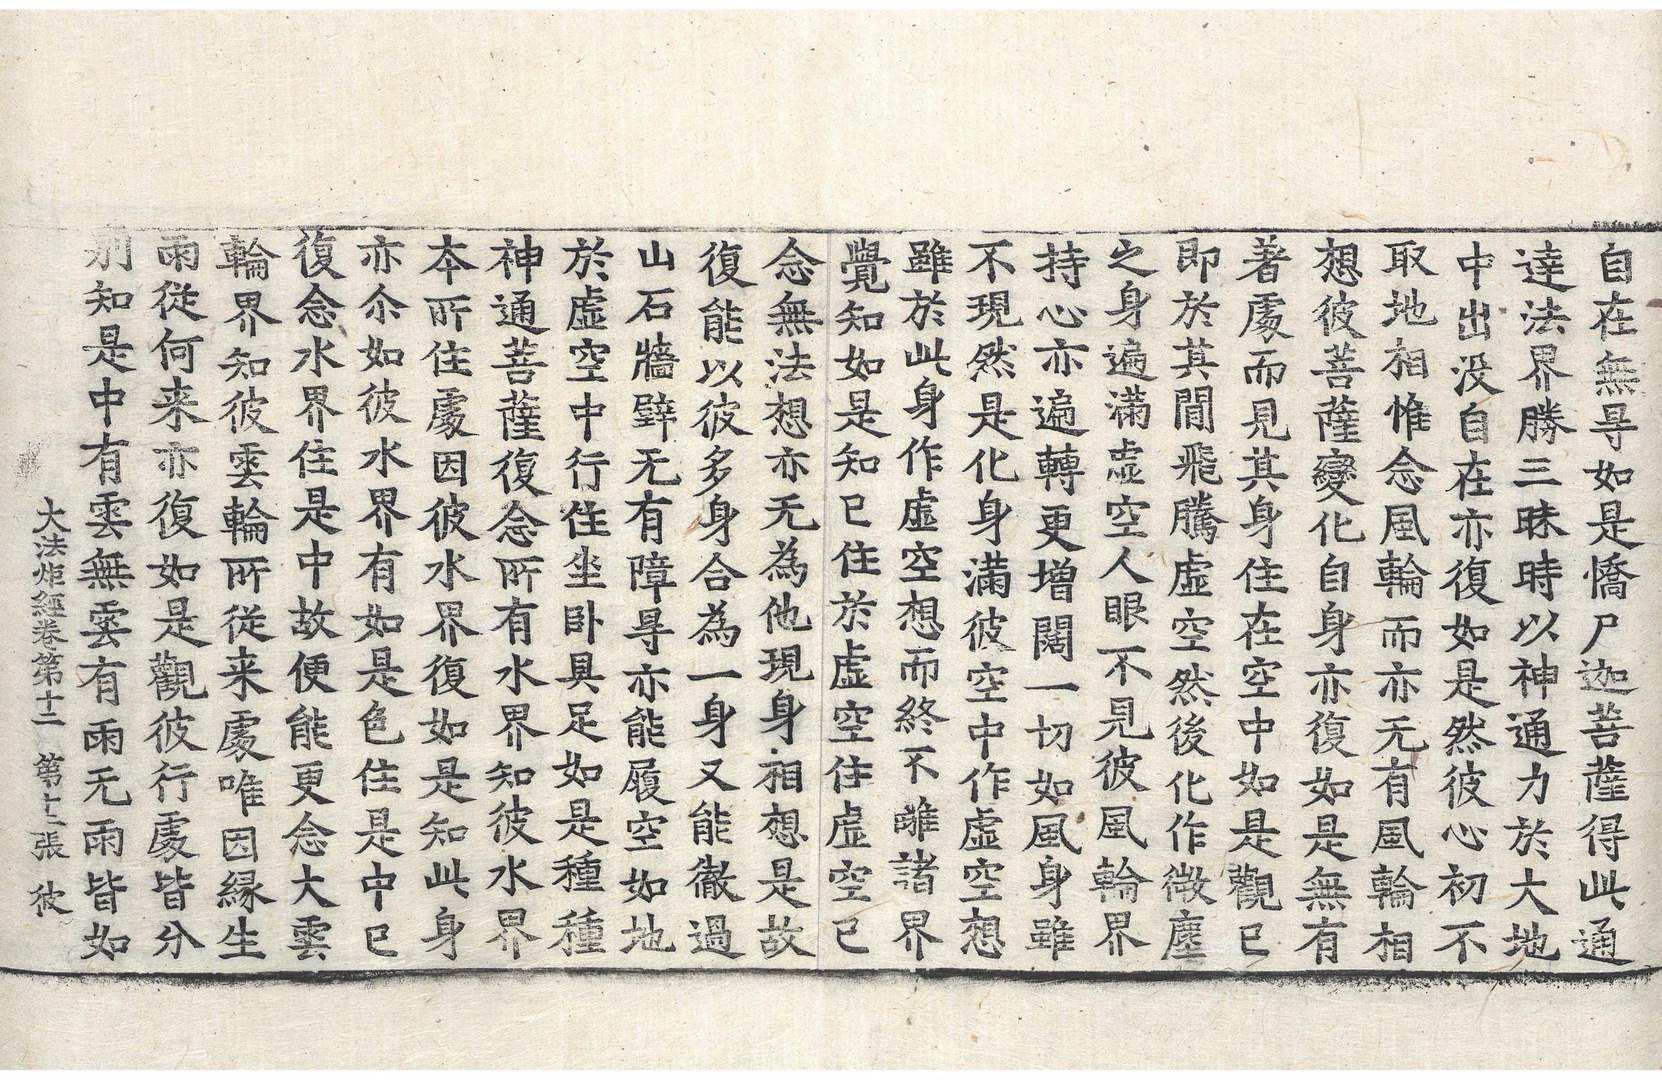 自在無㝵如是憍尸迦菩薩得此通
達法界勝三昧時以神通力於大地
中出没自在亦復如是然彼心初不
取地相惟念風輪而亦无有風輪相
想彼菩薩變化自身亦復如是無有
著處而見其身住在空中如是觀已
即於其間飛騰虛空然後化作微塵
之身遍滿虛空人眼不見彼風輪界
持心亦遍轉更增闊一切如風身雖
不現然是化身滿彼空中作虛空想
雖於此身作虛空想而終不離諸界
覺知如是知已住於虛空住虛空已
念無法想亦无為他現身相想是故
復能以彼多身合為一身又能徹過
山石牆壁无有障㝵亦能履空如地
於虛空中行住坐卧具足如是種種
神通菩薩復念所有水界知彼水界
本所住處因彼水界復如是知此身
亦尒如彼水界有如是色住是中已
復念水界住是中故便能更念大雲
輪界知彼雲輪所従来處唯因緣生
雨從何来亦復如是觀彼行處皆分
別知是中有雲無雲有雨无雨皆如
大法炬經卷第十二 第十二張 彼